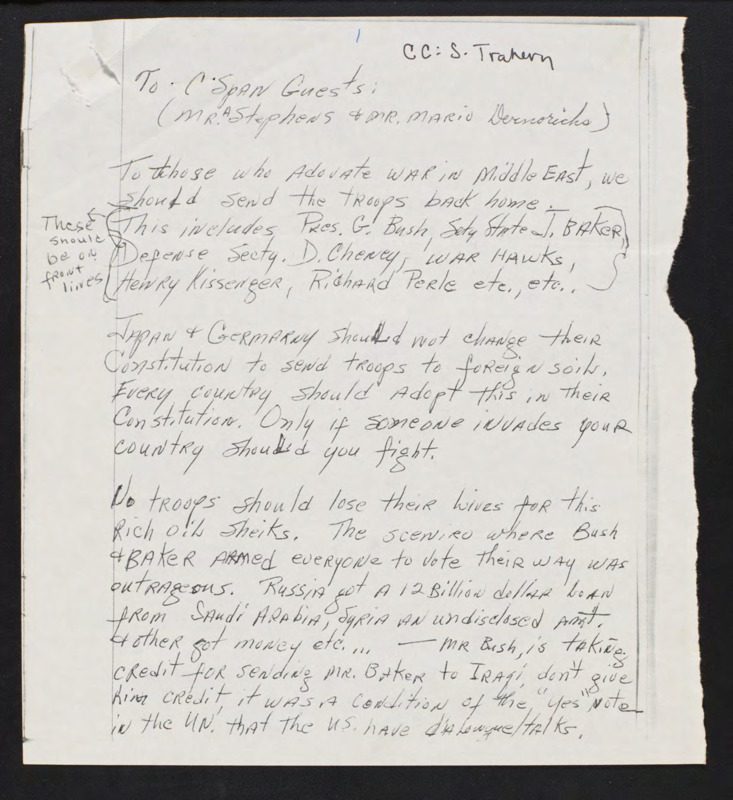 CC: S. Trahern
To: C-SPAN Guests:
(MR. Stephens & MR. MARIO
To those who Adovate WAR in Middle EAST, we
should send the TROOPS back home.
This includes Pres. G. Bush, Scty State J. BAKER,
Defense Secty. D. Cheney, WAR HAWKS,
Henry Kissenger, Richard Perle etc., etc..
These
should
be on
front
lines
JAPAN & GERMARNY should not change their
Constitution to send troops to foreign soil.
Every country should Adopt this in their
Constitution. Only if someone invades your
country should you fight.
No troops should lose their lives for this
Rich oil sheiks. The sceniro where Bush
& BAKER ARMed everyone to vote their way was
outrageous. Russia got A 12 Billion dollar loan
from SAudi ARAbia, Syria AN undisclosed Amt.
& other got money etc... — MR Bush, is tAking
credit for sending MR. BAKER to IRAqi, don't give
him credit, it was A condition of the, "Yes" Vote
in the UN. that the US. have dialougue/talks.